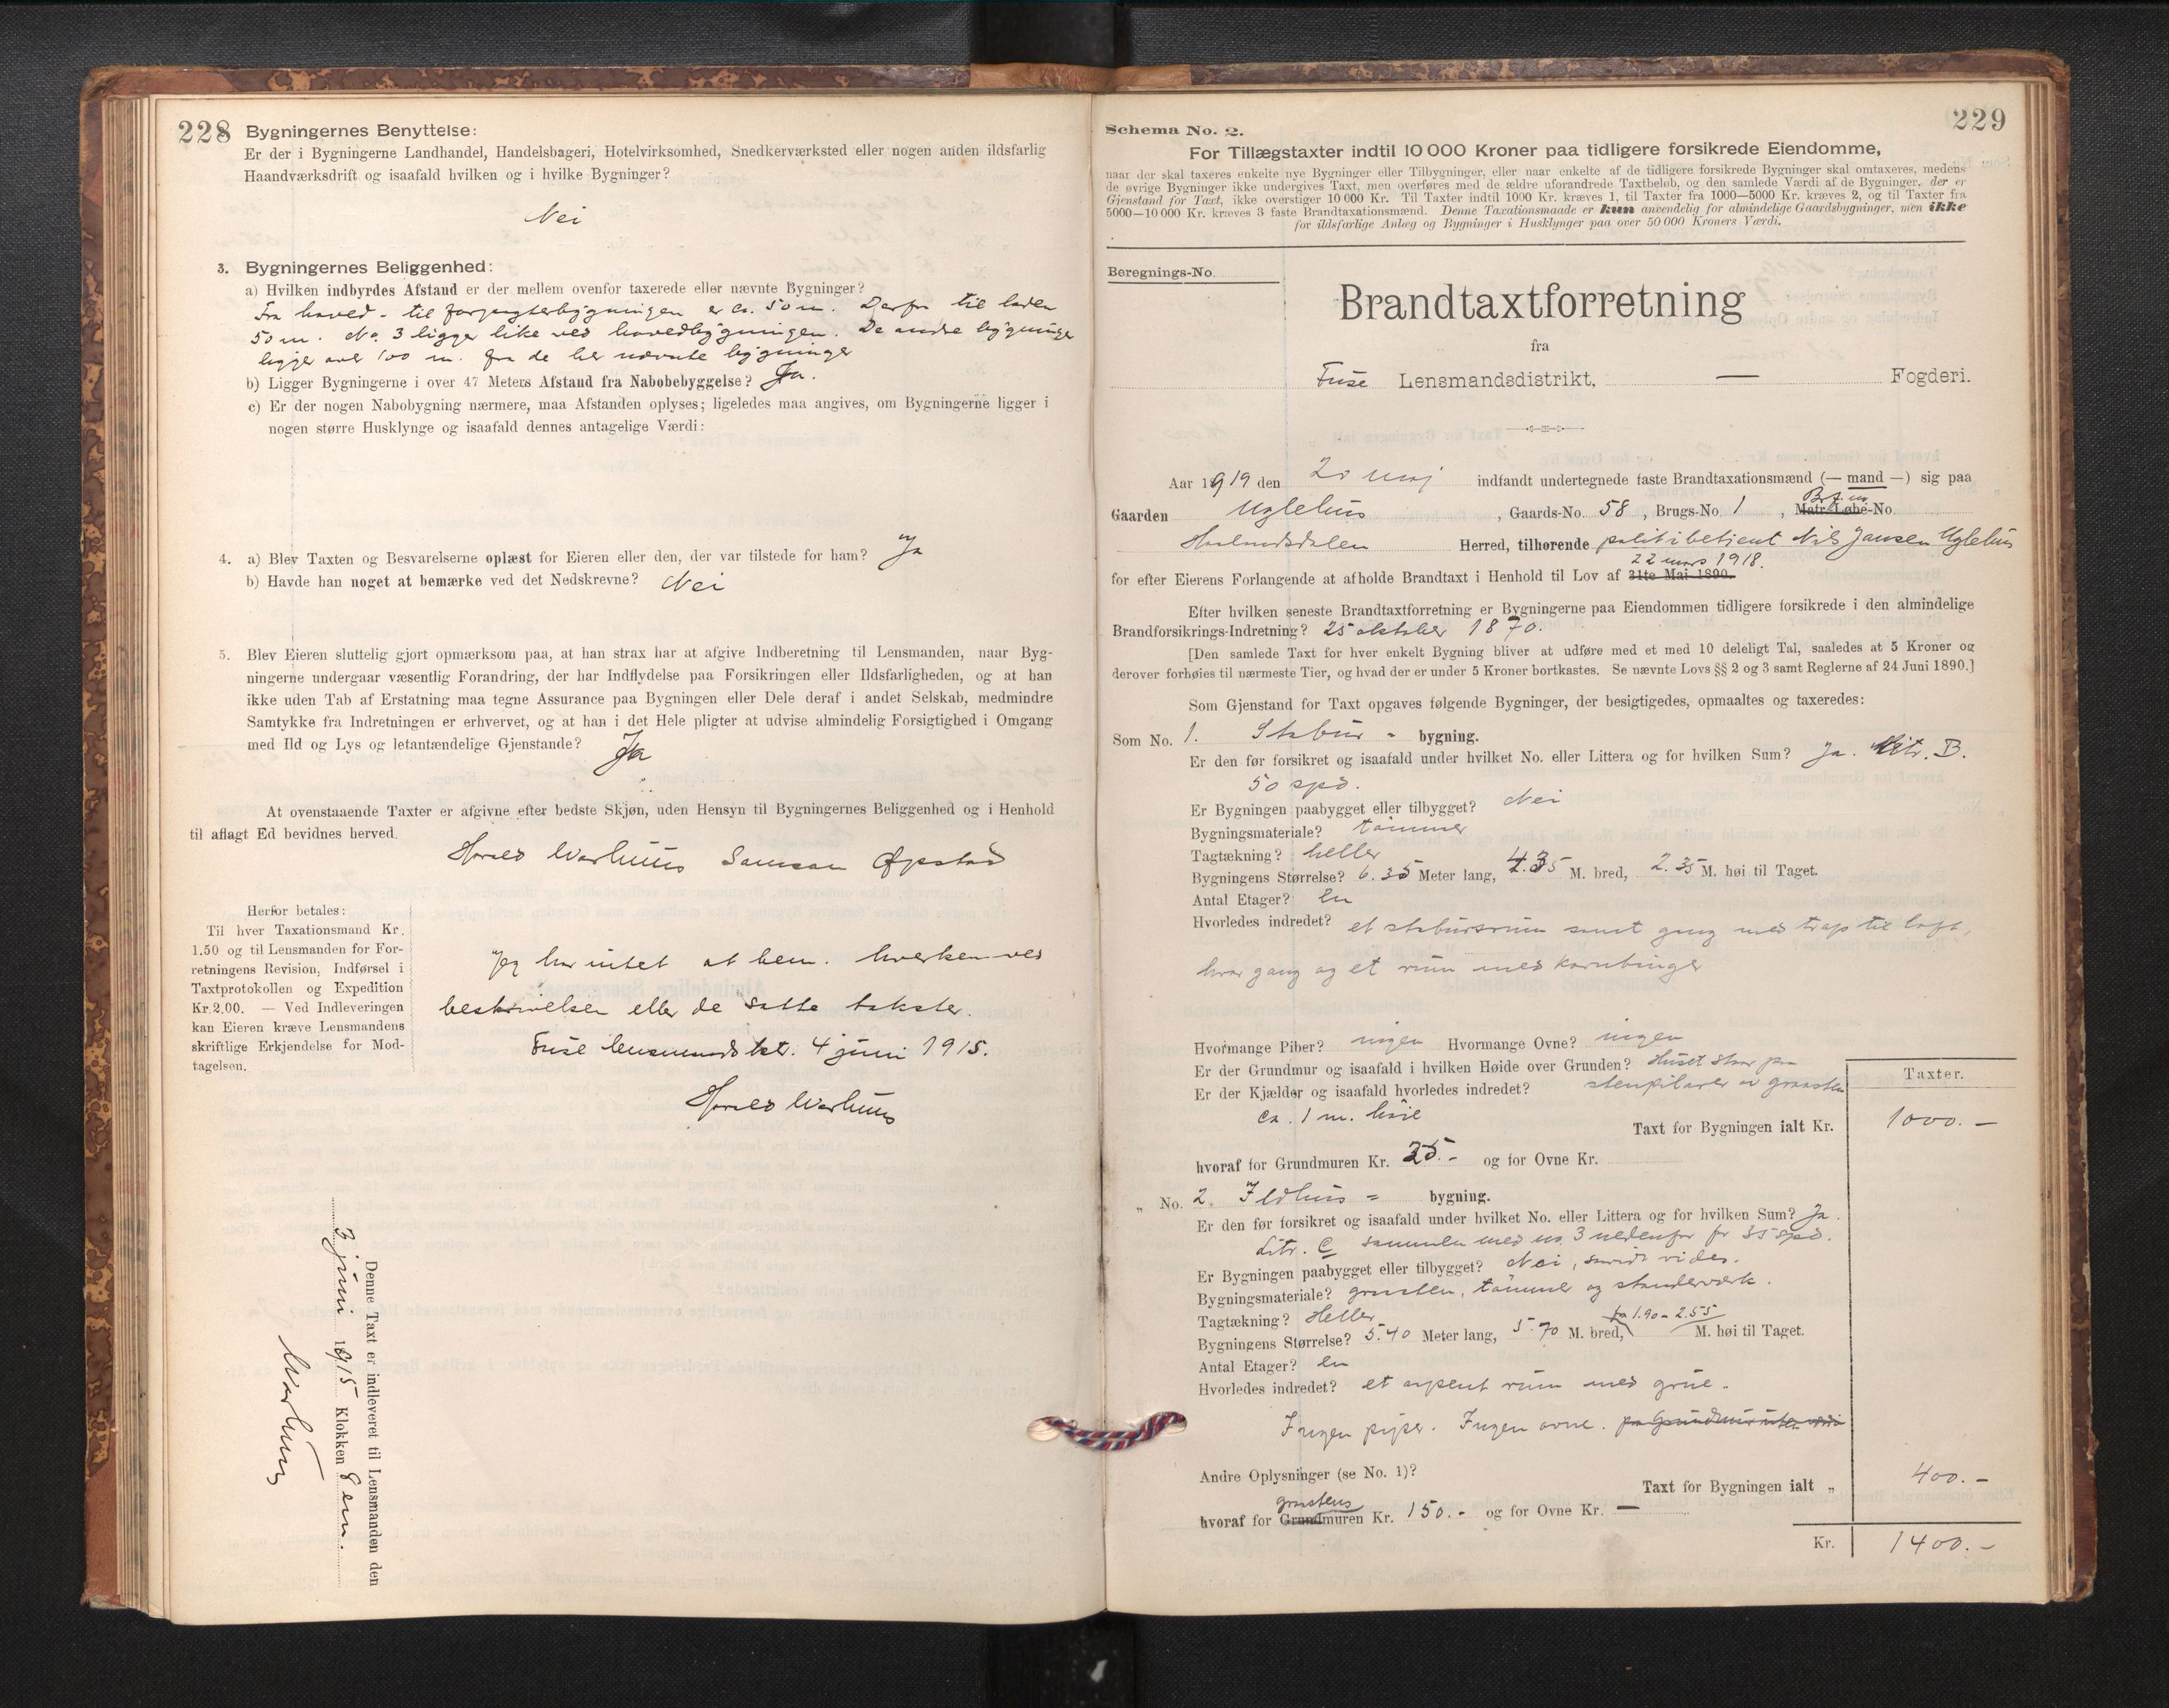 228
Bygningernes Benyttelse:
Er der i Bygningerne Landhandel, Handelsbageri, Hotelvirksomhed, Snedkerværksted eller nogen anden ildsfarlig
Haandværksdrift og isaafald hvilken og i hvilke Bygninger?
Nei
3. Bygningernes Beliggenhed:
a) Hvilken indbyrdes Afstand er der mellem ovenfor taxerede eller nævnte Bygninger?
Fra hoved- til forpagterbygningen er ca. 50 m. Derfra til laden
50 m. No. 3 ligger like ved hovedbygningen. De andre bygninger
ligger over 100 m. fra de her nævnte bygninger
b) Ligger Bygningerne i over 47 Meters Afstand fra Nabobebyggelse? Ja.
c) Er der nogen Nabobygning nærmere, maa Afstanden oplyses; ligeledes maa angives, om Bygningerne ligger i
nogen større Husklynge og isaafald dennes antagelige Værdi:
4. a) Blev Taxten og Besvarelserne oplæst for Eieren eller den, der var tilstede for ham? Ja
b) Havde han noget at bemærke ved det Nedskrevne? Nei
5. Blev Eieren sluttelig gjort opmærksom paa, at han strax har at afgive Indberetning til Lensmanden, naar Byg-
ningerne undergaar væsentlig Forandring, der har Indflydelse paa Forsikringen eller Ildsfarligheden, og at han
ikke uden Tab af Erstatning maa tegne Assurance paa Bygningen eller Dele deraf i andet Selskab, medmindre
Samtykke fra Indretningen er erhvervet, og at han i det Hele pligter at udvise almindelig Forsigtighed i Omgang
med Ild og Lys og letantændelige Gjenstande? Ja
At ovenstaaende Taxter er afgivne efter bedste Skjøn, uden Hensyn til Bygningernes Beliggenhed og i Henhold
til aflagt Ed bevidnes herved.
Harald Warhuus Samson Øpstad
Herfor betales:
Til hver Taxationsmand Kr.
1.50 og til Lensmanden for For-
retningens Revision, Indførsel i
Taxtprotokollen og Expedition
Kr. 2.00. — Ved Indleveringen
kan Eieren kræve Lensmandens
skriftlige Erkjendelse for Mod-
tagelsen.
Jeg har intet at bem. hverken ved
beskrivelsen eller de satte takster.
Fuse lensmandskt. 4 juni 1915.
Harald Warhuus
Denne Taxt er indleveret til Lensmanden den
3 juni 1915 Klokken 8 em.
Warhuus
229
Schema No. 2.
For Tillægstaxter indtil 10 000 Kroner paa tidligere forsikrede Eiendomme,
naar der skal taxeres enkelte nye Bygninger eller Tilbygninger, eller naar enkelte af de tidligere forsikrede Bygninger skal omtaxeres, medens
de øvrige Bygninger ikke undergives Taxt, men overføres med de ældre uforandrede Taxtbeløb, og den samlede Værdi af de Bygninger, der er
Gjenstand for Taxt, ikke overstiger 10 000 Kr. Til Taxter indtil 1000 Kr. kræves 1, til Taxter fra 1000—5000 Kr. kræves 2, og til Taxter fra
5000—10 000 Kr. kræves 3 faste Brandtaxationsmænd. Denne Taxationsmaade er kun anvendelig for almindelige Gaardsbygninger, men ikke
for ildsfarlige Anlæg og Bygninger i Husklynger paa over 50 000 Kroners Værdi.
Beregnings-No.
Brandtaxtforretning
fra
Fuse Lensmandsdistrikt, — Fogderi.
Aar 1919 den 20 maj indfandt undertegnede faste Brandtaxationsmænd (— mand —) sig paa
Gaarden Uglehus, Gaards-No. 58, Brugs-No. 1, Matr.-Løbe-No.
Br.t. no
Haalandsdalen Herred, tilhørende politibetjent Nils Jansen Uglehus
22 mars 1918.
for efter Eierens Forlangende at afholde Brandtaxt i Henhold til Lov af 31te Mai 1890.
Efter hvilken seneste Brandtaxtforretning er Bygningerne paa Eiendommen tidligere forsikrede i den almindelige
Brandforsikrings-Indretning? 25 oktober 1870.
[Den samlede Taxt for hver enkelt Bygning bliver at udføre med et med 10 deleligt Tal, saaledes at 5 Kroner og
derover forhøies til nærmeste Tier, og hvad der er under 5 Kroner bortkastes. Se nævnte Lovs §§ 2 og 3 samt Reglerne af 24 Juni 1890.]
Som Gjenstand for Taxt opgaves følgende Bygninger, der besigtigedes, opmaaltes og taxeredes:
Som No. 1. Stabur - bygning.
Er den før forsikret og isaafald under hvilket No. eller Littera og for hvilken Sum? Ja. Litr. B.
50 spd.
Er Bygningen paabygget eller tilbygget? Nei
Bygningsmateriale? tømmer
Tagtækning? heller
Bygningens Størrelse? 6.35 Meter lang, 4.35 M. bred, 2.35 M. høi til Taget.
Antal Etager? En
Hvorledes indredet? et stabursrum samt gang med trap til loft,
hvor gang og et rum med kornbinger
Hvormange Piber? ingen Hvormange Ovne? ingen
Er der Grundmur og isaafald i hvilken Høide over Grunden? Huset staar paa
Er der Kjælder og isaafald hvorledes indredet? stenpilarer av graasten
ca. 1 m. høie
Taxter.
Taxt for Bygningen ialt Kr. 1000.—
hvoraf for Grundmuren Kr. 25.- og for Ovne Kr.
„ No. 2. Ildhus - bygning.
Er den før forsikret og isaafald under hvilket No. eller Littera og for hvilken Sum? Ja.
Litr. C sammen med no. 3 nedenfor for 35 spd.
Er Bygningen paabygget eller tilbygget? Nei, savidt vides.
Bygningsmateriale? graasten, tømmer og stenderværk.
Tagtækning? Heller
Bygningens Størrelse? 5.40 Meter lang, 5.70 M. bred, fra 1.90 - 2.55 M. høi til Taget.
Antal Etager? En
Hvorledes indredet? et aapent rum med grue.
Ingen piper. Ingen ovne.
Andre Oplysninger (se No. 1)?
Taxt for Bygningen ialt „ 400.-
graastens
hvoraf for Grundmuren Kr. 150.- og for Ovne Kr. —
Kr. 1400.-